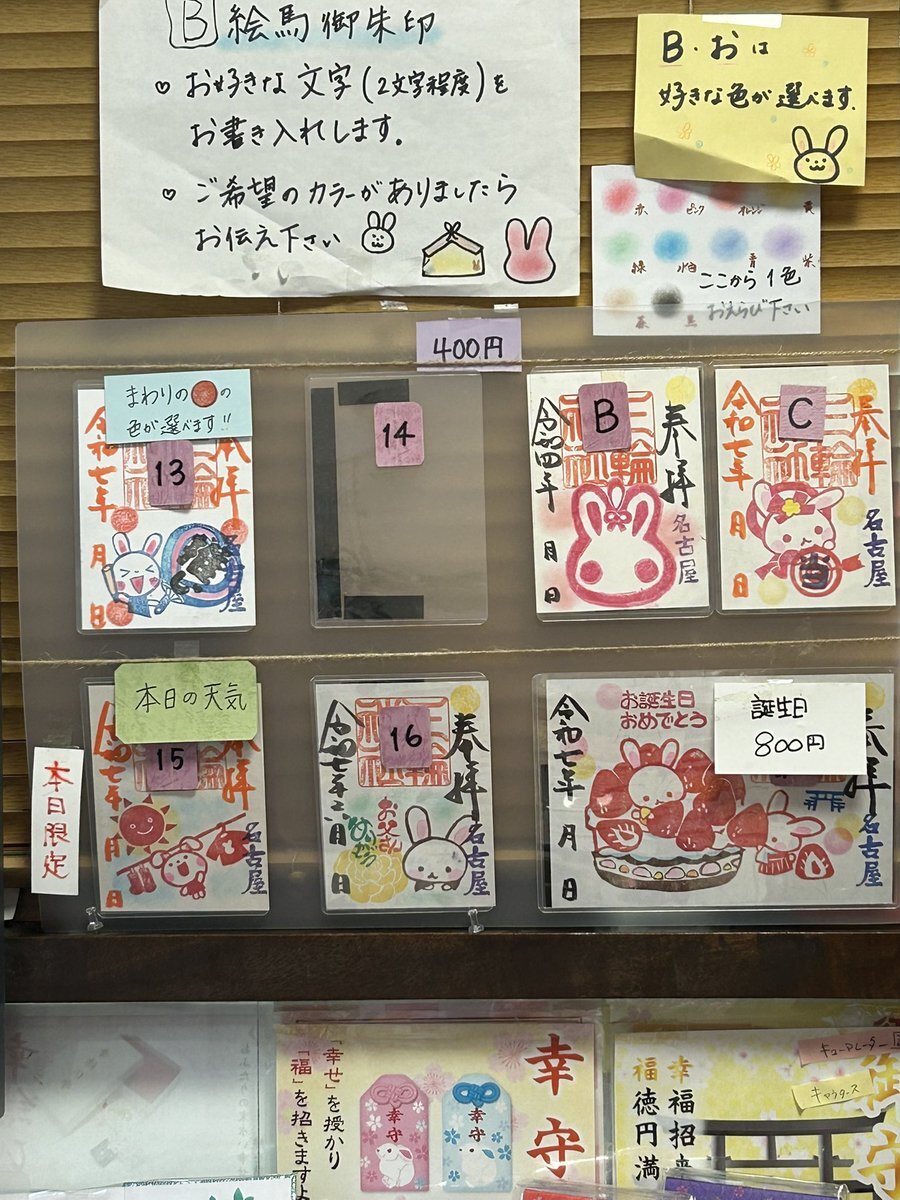 B 絵馬御朱印
♡ お好きな文字(2文字程度)を
お書き入れします。
♡ ご希望のカラーがありましたら
お伝え下さい
B・おは
好きな色が選べます。
赤 ピンク オレンジ 黄
緑 水色 青 紫
茶 黒
ここから1色
おえらび下さい
400円
まわりの の
色が選べます!!
13
奉拝
令和七年
月
日
名古屋
14
B
奉拝
三輪
令和四年
月
日
名古屋
C
奉拝
三輪
令和七年
月
日
名古屋
本日の天気
15
奉拝
令和七年
月
日
名古屋
本日限定
16
奉拝
令和七年六月
日
お父さん
ありがとう
名古屋
お誕生日
おめでとう
誕生日
800円
奉拝
令和七年
月
日
名古屋
「幸せ」を授かり
「福」を招きますよ
幸守
幸守
幸守
幸福招来
福徳円満
キューアレーター
キャクタース
御守